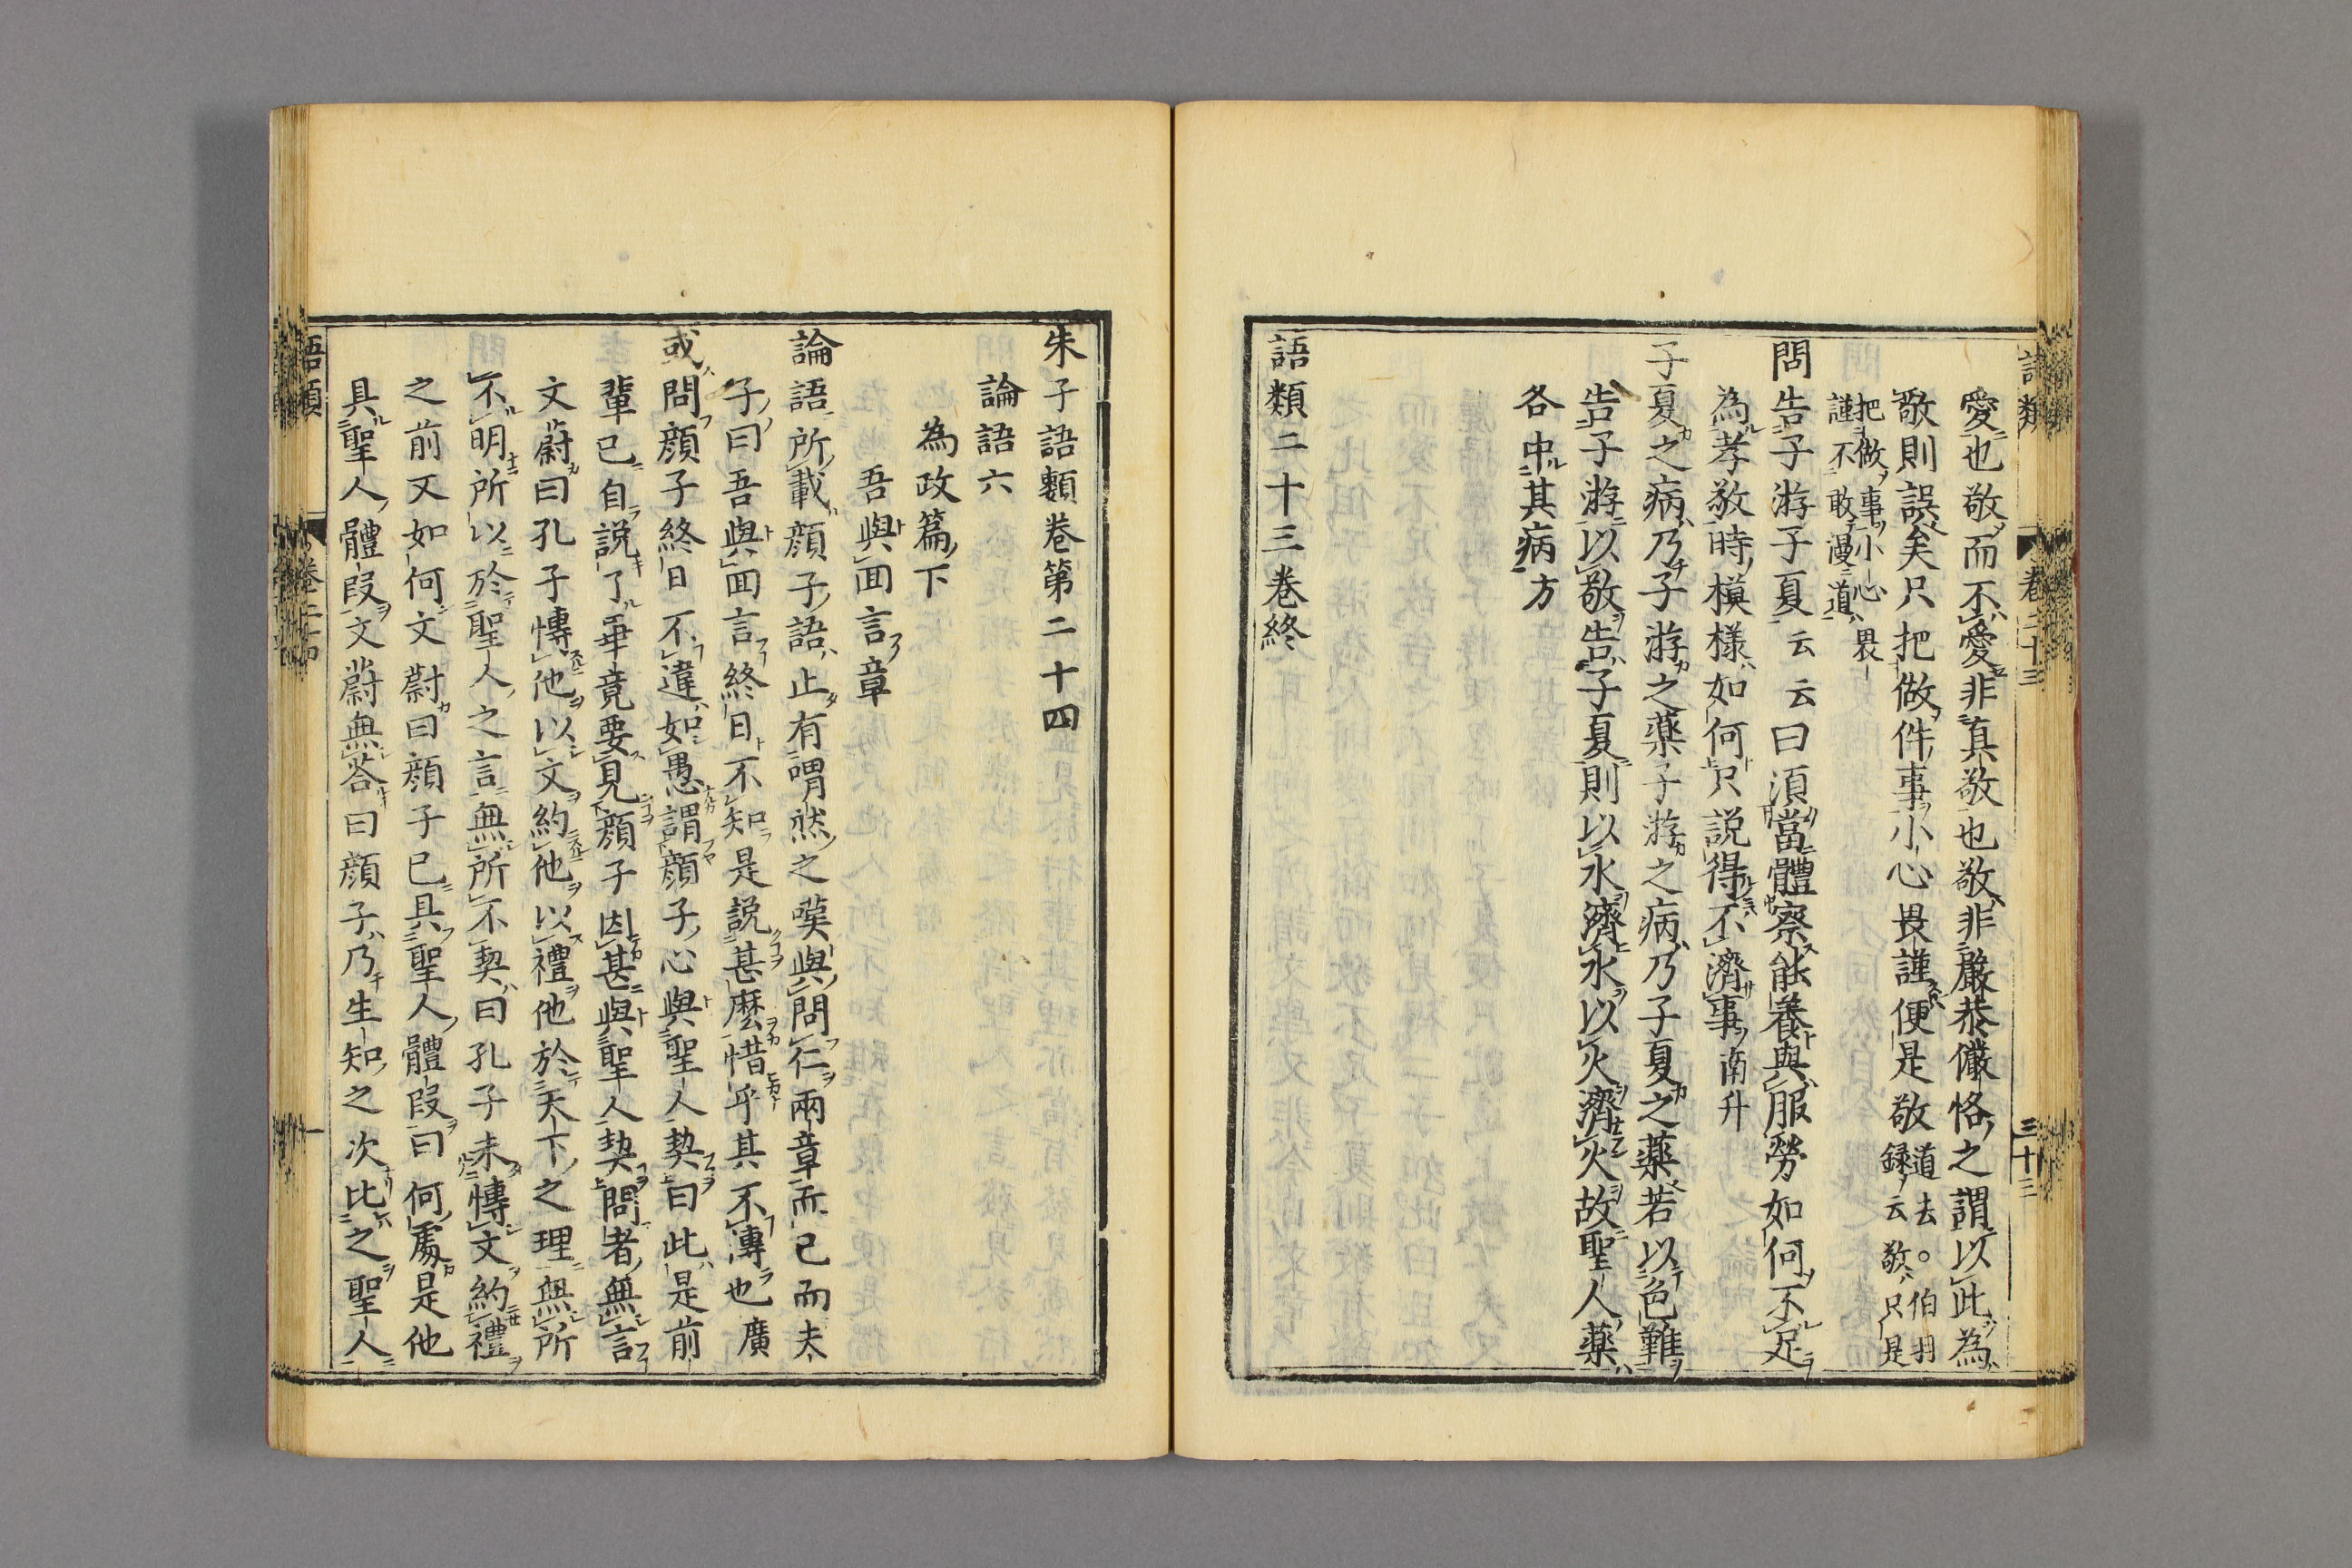 愛也敬而不愛非真敬也敬非嚴恭儼恪之謂以此為
敬則誤矣只把做件事小心畏謹便是敬道去。伯羽
錄云敬只是
把做事小心畏
謹不敢漫道
問告子游子夏云云曰須當體察能養與服勞如何不足
為孝敬時模樣如何只説得不濟事南升
子夏之病乃子游之藥子游之病乃子夏之藥若以色難
告子游以敬告子夏則以水濟水以火濟火故聖人藥
各中其病方
語類二十三巻終
朱子語類巻第二十四
論語六
為政篇下
吾與囬言章
論語所載顔子語止有喟然之嘆與問仁兩章而已而夫
子曰吾與囬言終日不知是説甚麼惜乎其不傳也廣
或問顔子終日不違如愚謂顔子心與聖人契曰此是前
輩已自説了畢竟要見顔子因甚與聖人契問者無言
文蔚曰孔子愽他以文約他以禮他於天下之理無所
不明所以於聖人之言無所不契曰孔子未愽文約禮
之前又如何文蔚曰顔子已具聖人體段曰何處是他
具聖人體段文蔚無答曰顔子乃生知之次比之聖人